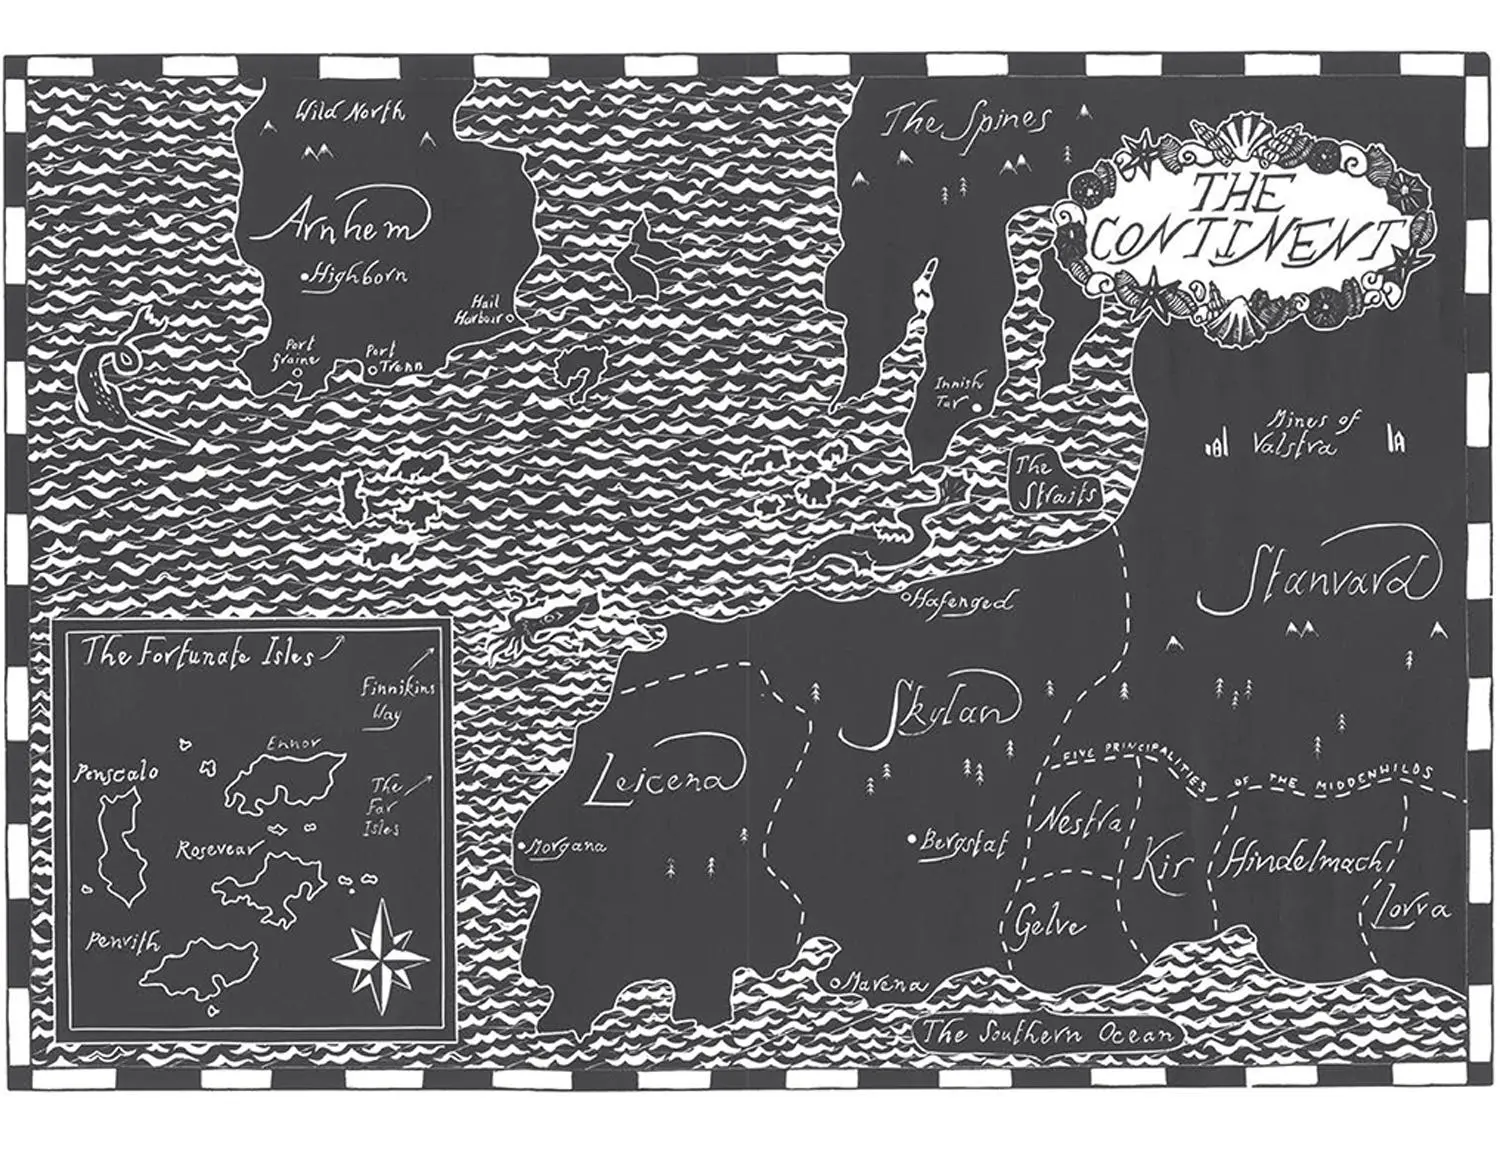 Wild North
Arnhem
Highborn
Hail
Harbour
Port
Graine
Port
Trenn
The Spines
THE
CONTINENT
Innish
Tar
The
Straits
Mines of
Valstra
Stanvard
Hafenged
Skylan
Leicena
Morgana
Bergstat
FIVE PRINCIPALITIES OF THE MIDDENWILDS
Nestra
Kis
Hindelmach
Lorra
Gelve
Mavena
The Southern Ocean
The Fortunate Isles
Finnikins
Way
Ennor
Penscalo
The
Far
Isles
Rosevear
Penrith